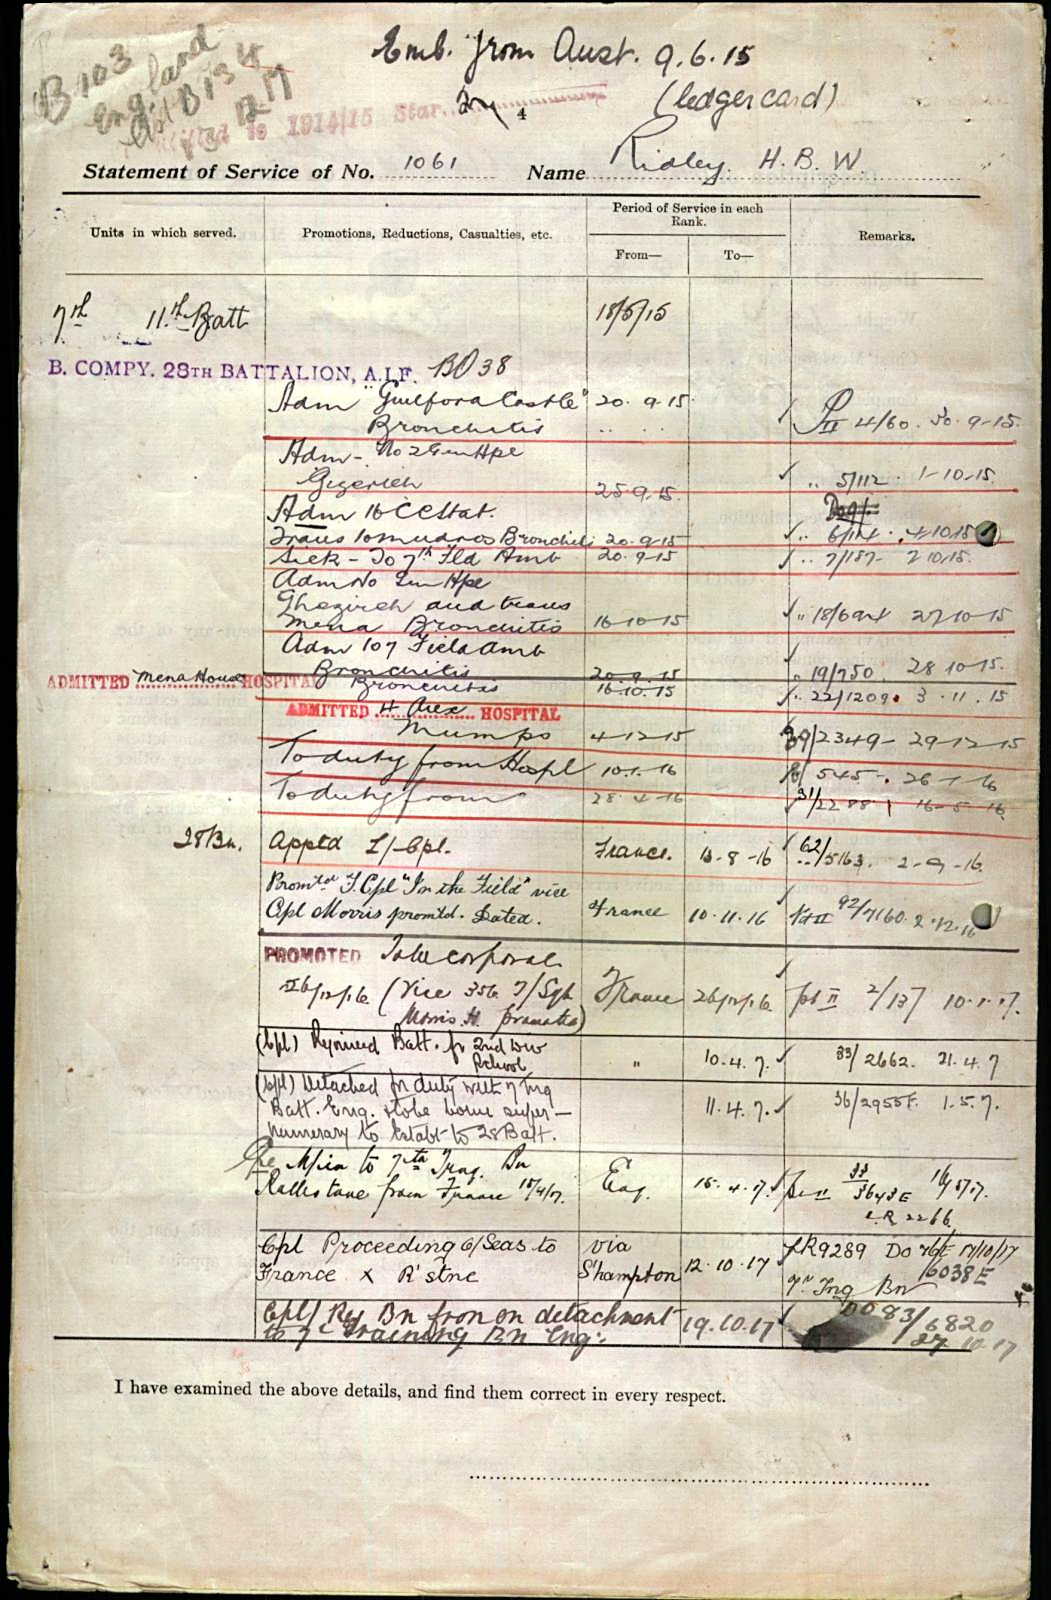 B 103
England
B 134
Emb. from Aust. 9.6.15
(ledger card)
to 1914/15 Star.
4
Statement of Service of No. 1061 Name Ridley H. B. W.
Units in which served.
Promotions, Reductions, Casualties, etc.
Period of Service in each Rank.
From—
To—
Remarks.
7th 11th Batt 18/5/15
B. COMPY. 28TH BATTALION, A.I.F. BO 38
Adm "Guilford Castle" 20.9.15
Bronchitis .. .. PII 4/60. 30.9-15.
Adm - No 2 Gen Hpe
Gezerieh 25-9.15. .. 5/112. 1-10-15.
Adm 16 CC Stat.
Trans to mudros Bronchitis 20.9-15 .. 4.10.15
Sick - To 7th Fld Amb 20.9-15 .. 7/187- 7 10.15.
Adm No Gen Hpe
Ghezireh and trans
Mena Bronchitis 16-10-15 .. 18/694 27-10-15
Adm 107 Field Amb
Bronchitis 20.9.15 .. 19/750. 28 10-15.
ADMITTED Mena House HOSPITAL Bronchitis 16.10.15 .. 22/1209. 3.11.15
ADMITTED 4 Aux HOSPITAL
Mumps 4-12-15 29/2349- 29-12-15
To duty from Hospl 10.1.16 545-. 26-1-16
To duty from 28.4-16 31/2288 16-5-16
28 Bn. Appt'd L/-Cpl. France. 13-8-16 62/5163. 2-9-16.
Promtd T. Cpl "In the Field" vice
Cpl Morris promtd. Dated. France 10.11.16 Pt II 92/7160. 2.12.16
PROMOTED To be corporal
26/12/16 (Vice 356 T/Sgt France 26/12/16 pt II 2/137 10.1.17.
Morris H. promoted)
(Cpl) Rejoined Batt. fr 2nd Div
School " 10.4.7. 33/2662. 21.4.7
(Cpl) Detached for duty with 7 Trng
Batt. Eng. & to be borne super- 11.4.7. 36/2955F. 1.5.7.
numerary to Establt to 28 Batt.
M/in to 7th Trng. Bn
Rollestone from France 15/4/17. Eng. 15.4.17. 33/3643E
L.R 2266.
Cpl Proceeding O/Seas to via 12.10.17 LR9289 Do 76E 17/10/17
France x R'stne S'hampton 6038E
7th Tng Bn
Cpl/ Rej Bn from on detachment 19.10.17 DO 83/6820
to 7 Training Bn Eng: 27 10.17
I have examined the above details, and find them correct in every respect.